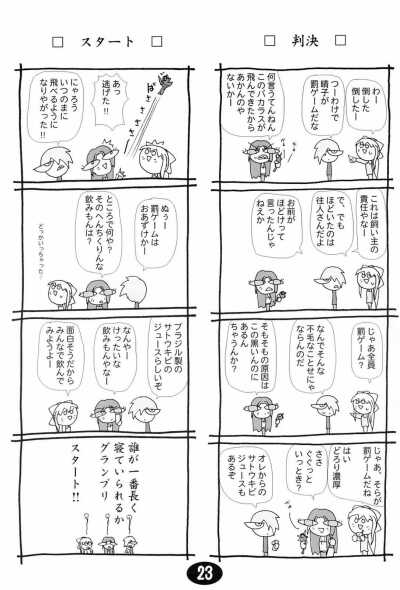 □ 判決 □
わー
倒した
倒したー
つーわけで
晴子が
罰ゲームだな
何言うてんねん
このバカラスが
飛んできたから
あかんのや
ないかー
これは飼い主の
責任やなー
で、でも
ほどいたのは
往人さんだよ
お前が
ほどけって
言ったんじゃ
ねえか
じゃあ全員
罰ゲーム？
なんでそんな
不毛なことせにゃ
ならんのだ
そもそもの原因は
この黒いんのに
ちゃうんか？
じゃあ、そらが
罰ゲームだね
はい、
どろり濃厚
ささ
ぐぐっと
いっとき？
オレからの
サトウキビ
ジュースも
あるぞ
□ スタート □
ばさ
ばさ
ばさ
あっ
逃げた!!
にゃろう
いつのまに
飛べるように
なりやがった!!
ぬぅー
罰ゲームは
おあずけかー
ところで何や？
そのへんちくりんな
飲みもんは？
どっかいっちゃった…
ブラジル製の
サトウキビの
ジュースらしいぞ
なんやー
けったいな
飲みもんやなー
面白そうだから
みんなで飲んで
みようよー
誰が一番長く
寝ていられるか
グランプリ
スタート!!
23